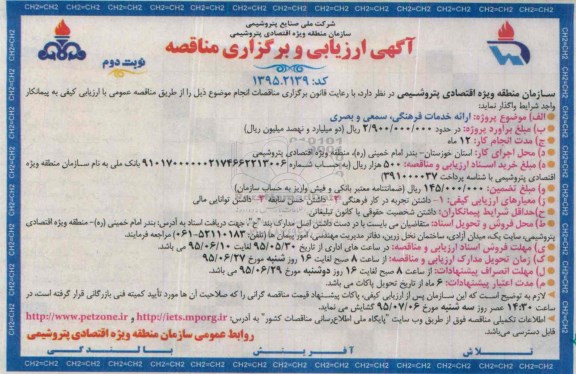 CH2=CH2 CH2=CH2 CH2=CH2 CH2=CH2 CH2=CH2 CH2=CH2 CH2=CH2 CH2=CH2 CH2=CH2 CH2=CH2 CH2=CH2 CH2=CH2
شرکت ملی صنایع پتروشیمی
سازمان منطقه ویژه اقتصادی پتروشیمی
آگهی ارزیابی و برگزاری مناقصه
نوبت دوم
کد: ۱۳۹۵.۲۱۳۹
سازمان منطقه ویژه اقتصادی پتروشیمی در نظر دارد، با رعایت قانون برگزاری مناقصات انجام موضوع ذیل را از طریق مناقصه عمومی با ارزیابی کیفی به پیمانکار
واجد شرایط واگذار نماید:
الف) موضوع پروژه: ارائه خدمات فرهنگی، سمعی و بصری
ب) مبلغ برآورد پروژه: در حدود ۲/۹۰۰/۰۰۰/۰۰۰ ریال (دو میلیارد و نهصد میلیون ریال)
ج) مدت انجام کار: ۱۲ ماه
د) محل اجرای کار: استان خوزستان- بندر امام خمینی (ره)، منطقه ویژه اقتصادی پتروشیمی
ه) مبلغ خرید اسناد ارزیابی و مناقصه: ۵۰۰ هزار ریال (به حساب شماره بانک ملی به نام سازمان منطقه ویژه
اقتصادی پتروشیمی با شناسه پرداخت ۳۹۱۰۰۰۰۳۷)
و) مبلغ تضمین: ۱۴۵/۰۰۰/۰۰۰ ریال (ضمانتنامه معتبر بانکی و فیش واریز به حساب سازمان)
ز) معیارهای ارزیابی کیفی: ۱- داشتن تجربه در کار فرهنگی ۲- داشتن حسن سابقه ۳- داشتن توانایی مالی
ح) حداقل شرایط پیمانکاران: داشتن شخصیت حقوقی یا کانون تبلیغاتی
ط) محل فروش و تحویل اسناد: متقاضیان می بایست با در دست داشتن اصل مدارک بند "ح"، جهت دریافت اسناد به آدرس: بندر امام خمینی (ره)- منطقه ویژه اقتصادی
پتروشیمی، سایت یک، میدان آزادی، ساختمان نخل زرین، دفاتر مدیریت مهندسی، امور پیمان ها (تلفن: ۵۲۱۱۰۱۸۳-۰۶۱) مراجعه فرمایند.
ی) مهلت فروش اسناد ارزیابی و مناقصه: در ساعت های اداری از تاریخ ۹۵/۰۵/۳۰ لغایت ۹۵/۰۶/۱۰ می باشد.
ک) زمان تحویل مدارک ارزیابی و مناقصه: از ساعت ۸ صبح لغایت ۱۶ روز شنبه مورخ ۹۵/۰۶/۲۷
ل) مهلت انصراف پیشنهادات: از ساعت ۸ صبح لغایت ۱۶ روز دوشنبه مورخ ۹۵/۰۶/۲۹ می باشد.
م) مدت اعتبار پیشنهادات: ۶ ماه از تاریخ تحویل پاکات می باشد.
٭ لازم به توضیح است که این سازمان پس از ارزیابی کیفی، پاکات پیشنهاد قیمت مناقصه گرانی را که صلاحیت آن ها مورد تأیید کمیته فنی بازرگانی قرار گرفته است، در
ساعت ۱۴:۳۰ عصر روز سه شنبه مورخ ۹۵/۰۷/۰۶ گشایش می نماید.
٭ اطلاعات تکمیلی مناقصه فوق از طریق وب سایت "پایگاه ملی اطلاع رسانی مناقصات کشور" به آدرس: http://iets.mporg.ir و http://www.petzone.ir
قابل دسترسی می باشد.
روابط عمومی سازمان منطقه ویژه اقتصادی پتروشیمی
تلاش آفرینش بالندگی
CH2=CH2 CH2=CH2 CH2=CH2 CH2=CH2 CH2=CH2 CH2=CH2 CH2=CH2 CH2=CH2 CH2=CH2 CH2=CH2 CH2=CH2 CH2=CH2